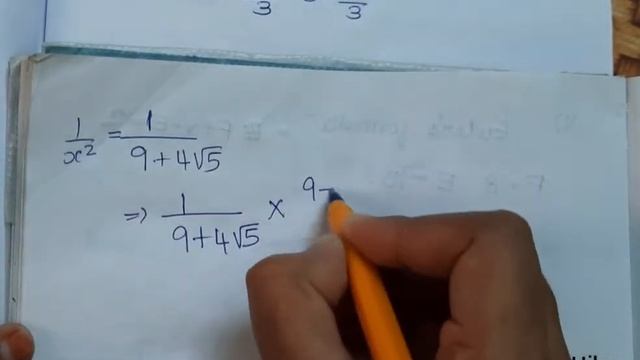 3 3
1/x² = 1/(9+4√5)
⇒ 1/(9+4√5) × 9-